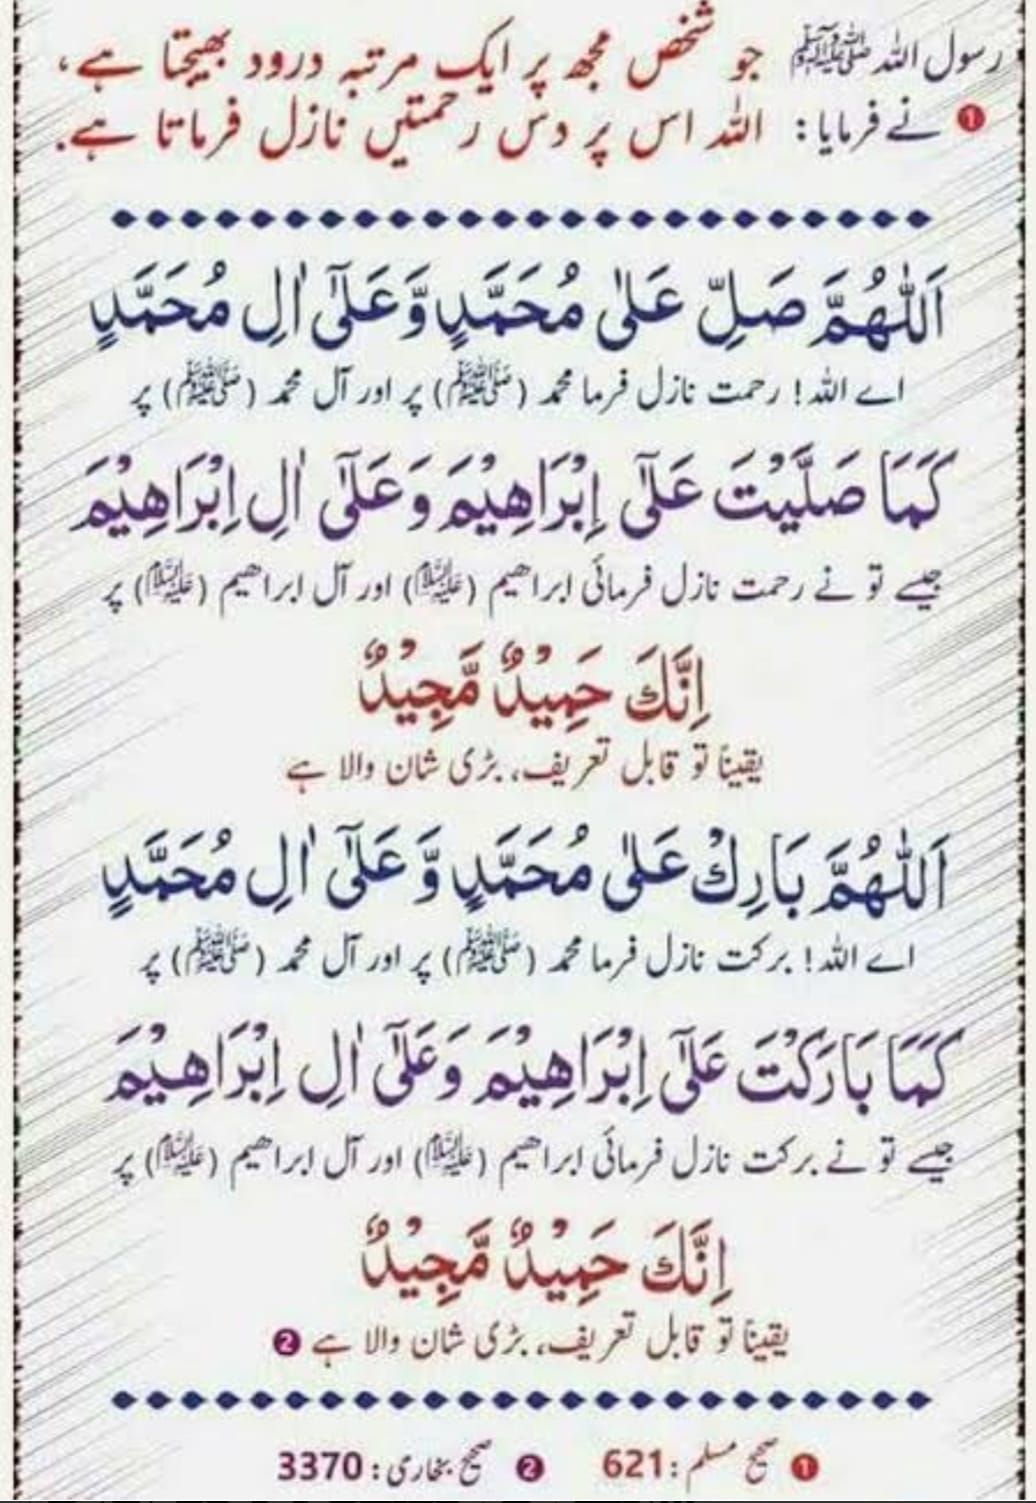 رسول اللہ ﷺ جو شخص مجھ پر ایک مرتبہ درود بھیجتا ہے،
❶ نے فرمایا: اللہ اس پر دس رحمتیں نازل فرماتا ہے.
اَللّٰهُمَّ صَلِّ عَلٰی مُحَمَّدٍ وَّعَلٰٓی اٰلِ مُحَمَّدٍ
اے اللہ! رحمت نازل فرما محمد (ﷺ) پر اور آل محمد (ﷺ) پر
كَمَا صَلَّيْتَ عَلٰٓی اِبْرَاهِيْمَ وَعَلٰٓی اٰلِ اِبْرَاهِيْمَ
جیسے تو نے رحمت نازل فرمائی ابراھیم (علیہ السلام) اور آل ابراھیم (علیہ السلام) پر
اِنَّكَ حَمِيْدٌ مَّجِيْدٌ
یقیناً تو قابل تعریف، بڑی شان والا ہے
اَللّٰهُمَّ بَارِكْ عَلٰی مُحَمَّدٍ وَّعَلٰٓی اٰلِ مُحَمَّدٍ
اے اللہ! برکت نازل فرما محمد (ﷺ) پر اور آل محمد (ﷺ) پر
كَمَا بَارَكْتَ عَلٰٓی اِبْرَاهِيْمَ وَعَلٰٓی اٰلِ اِبْرَاهِيْمَ
جیسے تو نے برکت نازل فرمائی ابراھیم (علیہ السلام) اور آل ابراھیم (علیہ السلام) پر
اِنَّكَ حَمِيْدٌ مَّجِيْدٌ
یقیناً تو قابل تعریف، بڑی شان والا ہے ❷
❶ صحیح مسلم: 621 ❷ صحیح بخاری: 3370